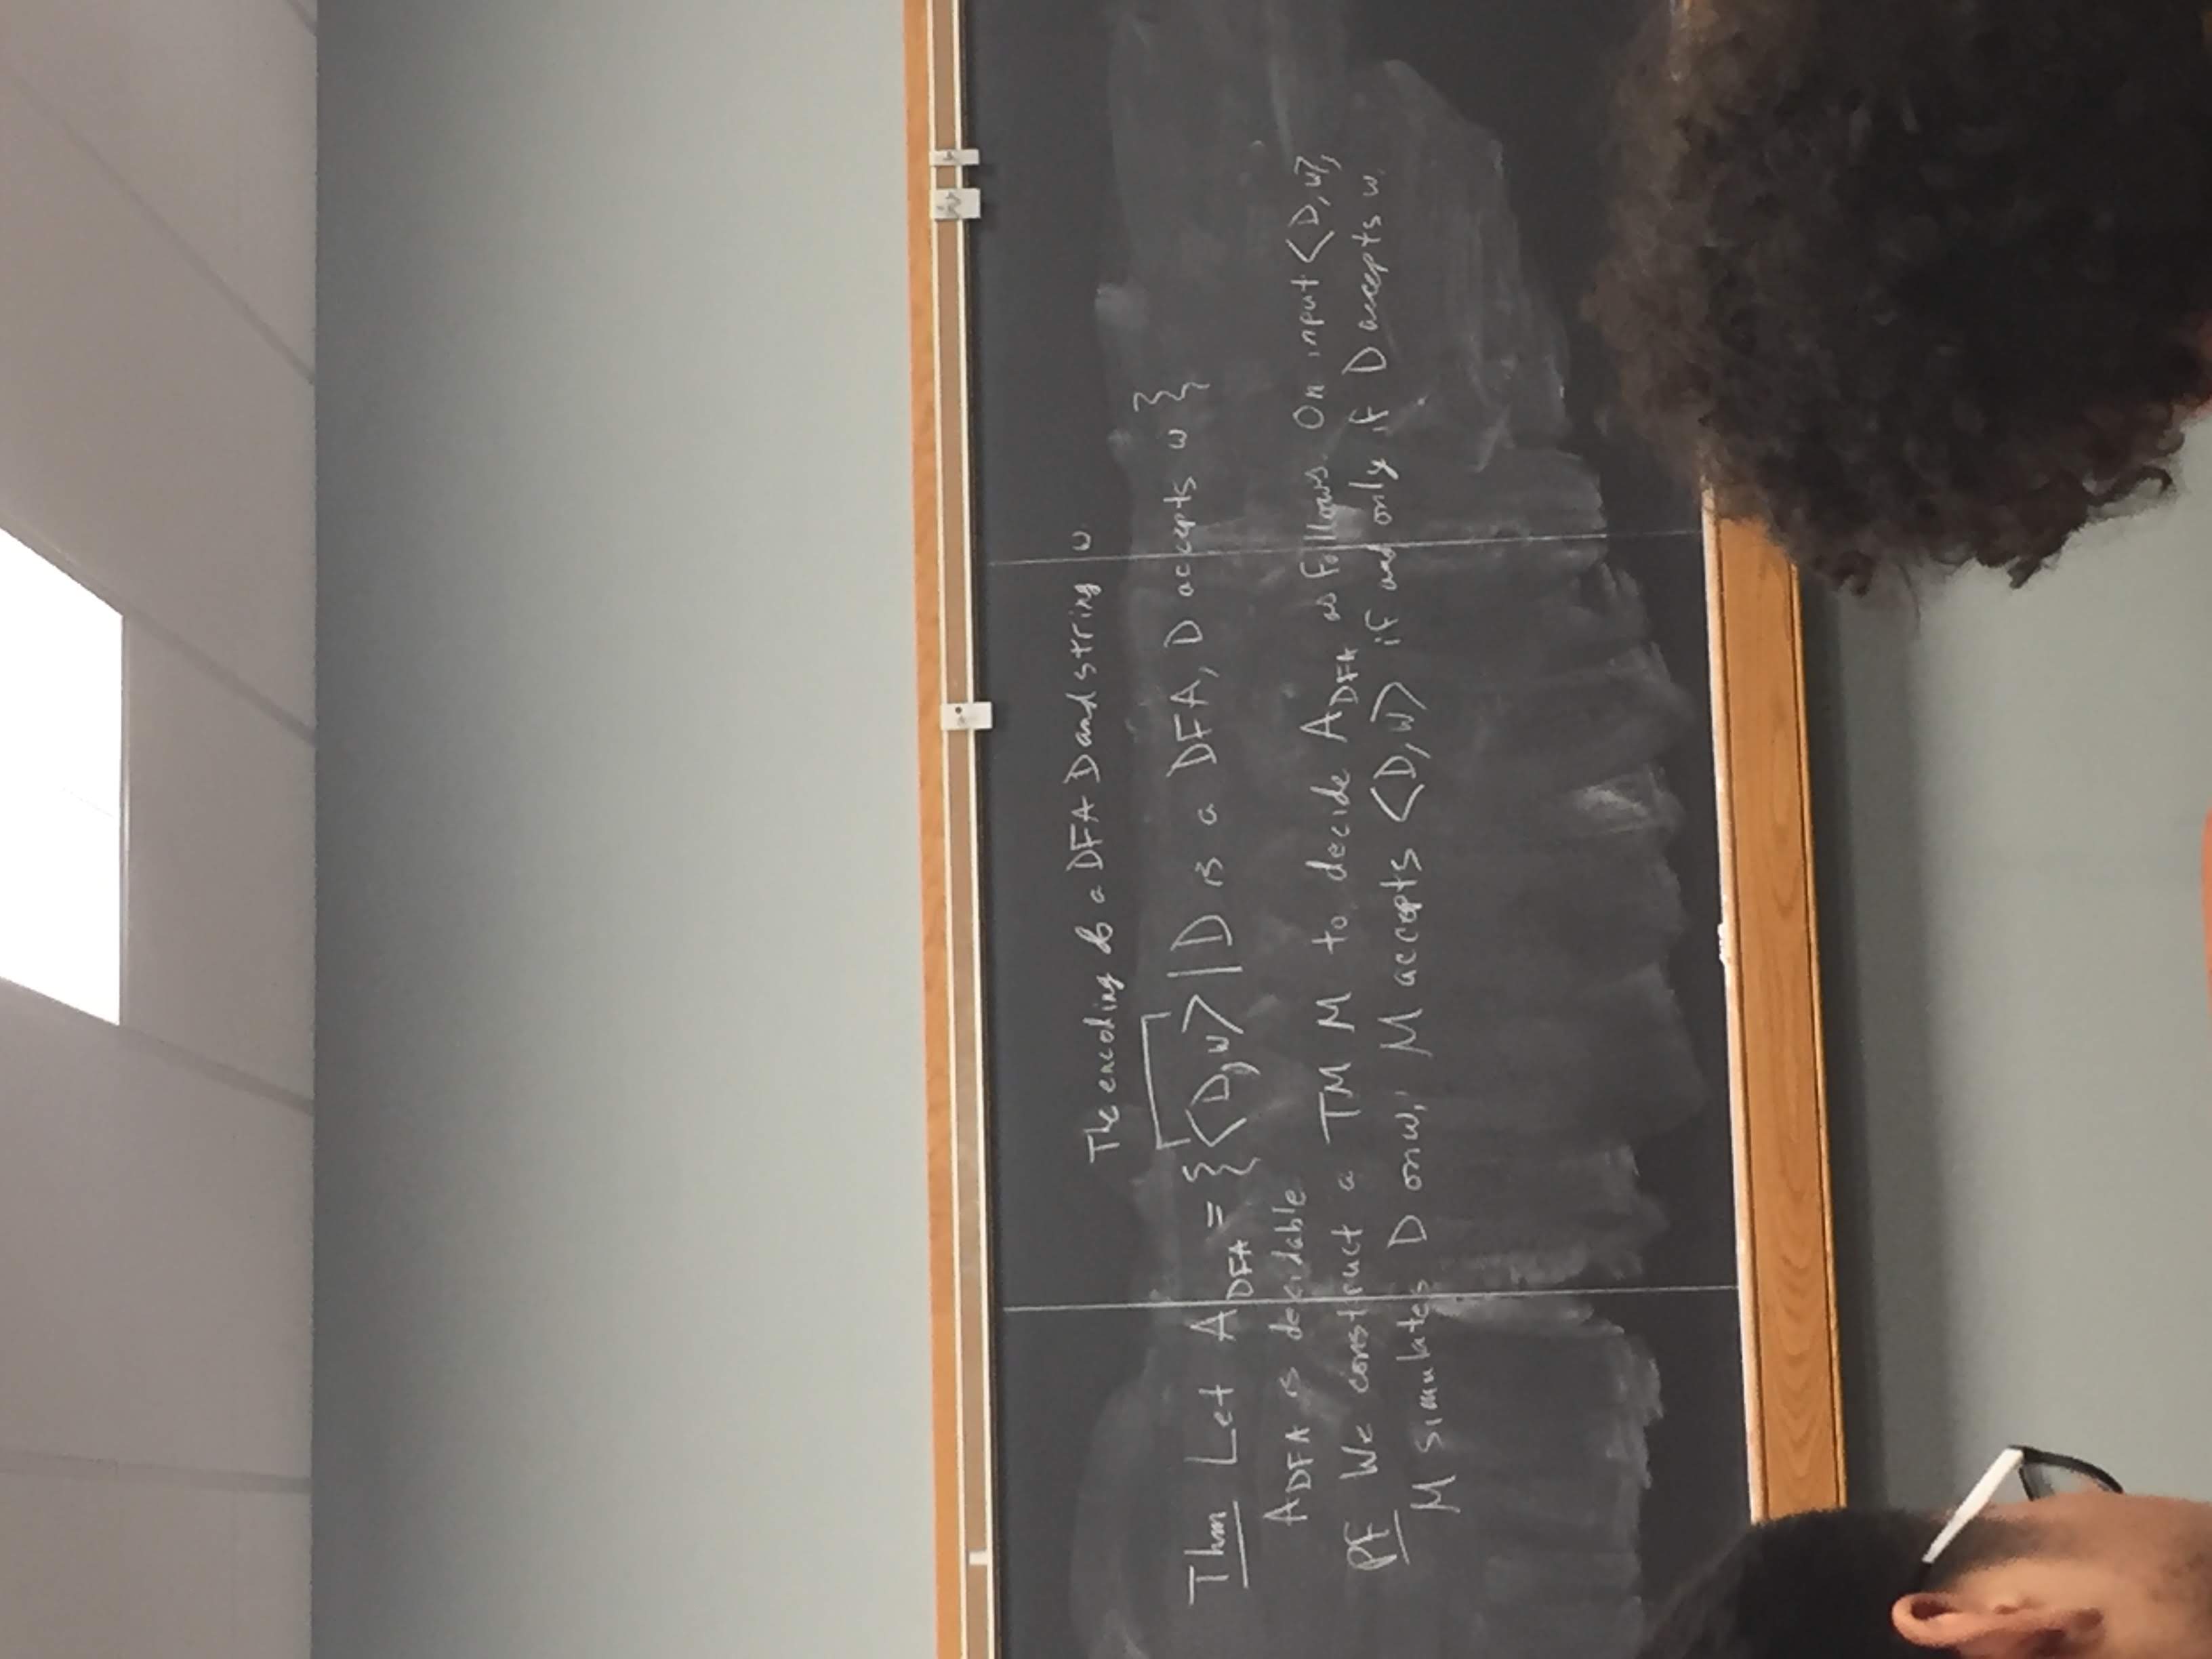 The encoding of a DFA D and string w
Thm Let A_DFA = {⟨D,w⟩ | D is a DFA, D accepts w}
A_DFA is decidable
PF We construct a TM M to decide A_DFA as follows. On input ⟨D,w⟩,
M simulates D on w, M accepts ⟨D,w⟩ if and only if D accepts w.